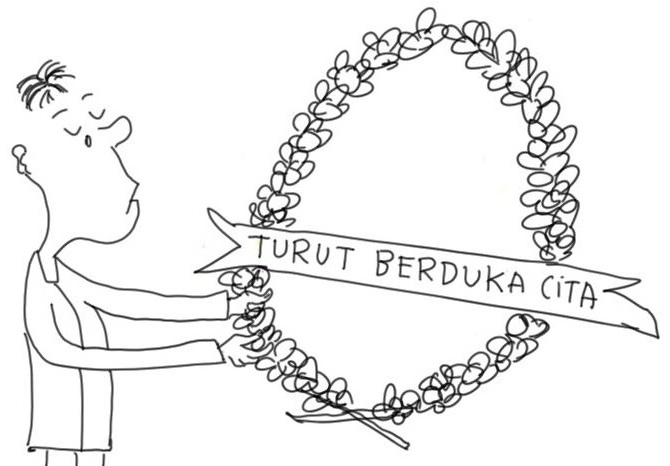 TURUT BERDUKA CiTA